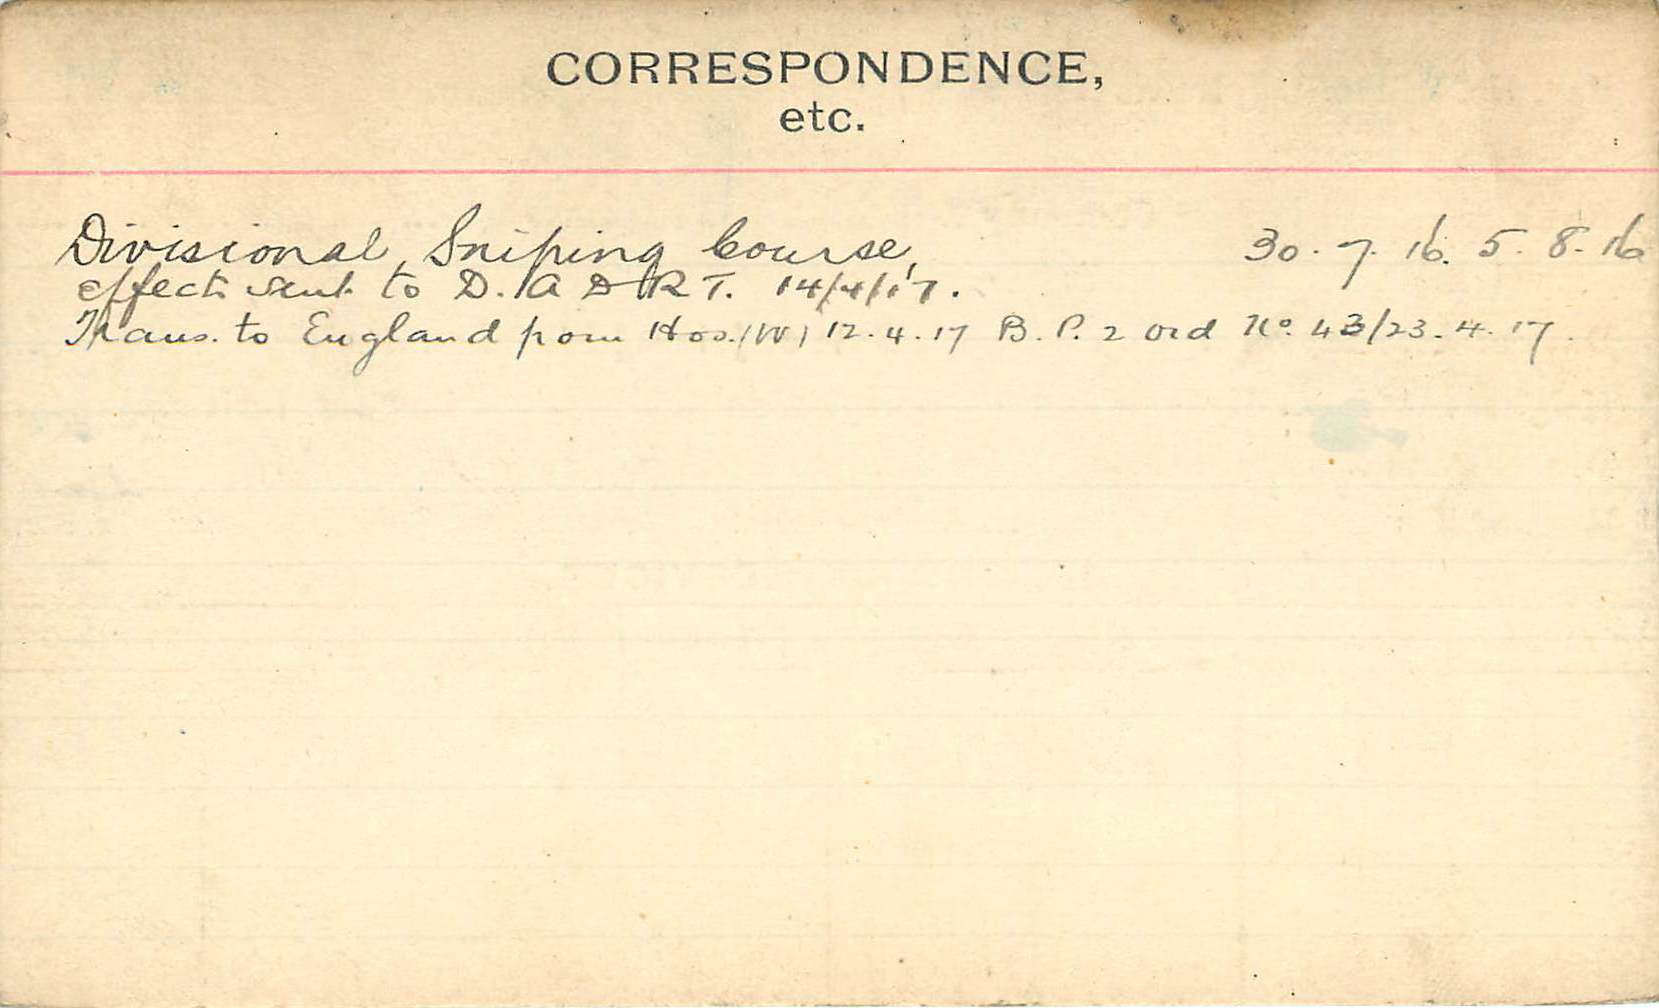 CORRESPONDENCE,
etc.
Divisional Sniping Course, 30. 7. 16. 5. 8. 16
effects sent to D. A D R T. 14/4/17.
Trans. to England from Hos. (W) 12. 4. 17 B. P. 2 ord No. 43/23. 4. 17.